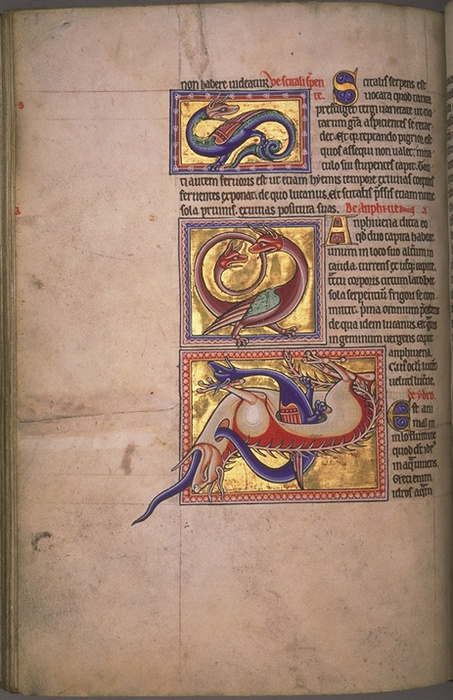 non habere uideatur De scitali serpen
te. Scitalis serpens est
uocata quod tanta
prefulget tergi uarietate ut no
tarum gr̄a aspicientes se retar
det. Et qr reptando pigrior est
quos assequi non ualet, mira
culo sui stupentes capit. Tan
ti autem feruoris est ut etiam hyemis tempore exuuias corporis
feruentes exponat. de quo lucanus. Et scitalis
sola pruinis exuuias positura suas. De Anphiuena
Anphiuena dicta eo
qd duo capita habeat
unum in loco suo alterum in
cauda. currens ex utroque capite
tractu corporis circulato. hec
sola serpentium frigori se com
mittit. prima omnium procedens
de qua idem lucanus. Et grauis
in geminum uergens caput
anphiuena.
Cuius oculi lucent
ueluti lucerne.
de ydro.
Est ani
mal in
nilo flumine
quod dr ydr
in aqua uiuens.
Greci enim
idros aquam